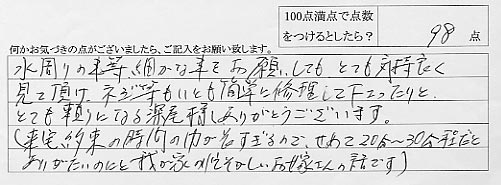 100点満点で点数
をつけるとしたら?
98 点
何かお気づきの点がございましたら、ご記入をお願い致します。
水周りの事等、細かな事をお願いしても とても気持良く
見て頂け、ネジ等もいとも簡単に修理して下さったりと、
とても頼りになる深尾様、ありがとうございます。
(来宅約束の時間の巾が若すぎるので、せめて20分〜30分程だと
ありがたいのにと我が家の忙そがしいお嫁さんの話です)